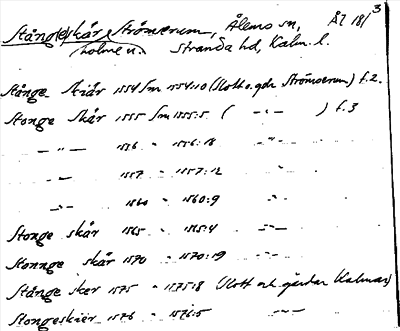 Stång(e)skär, Strömserum, Ålems sn, Ål 18/3
holme u. Stranda hd, Kalm. l.
Stånge Skiär 1554 Sm 1554:10 (Slott o. gdr Strömserum) f. 2.
Stonge Skär 1555 Sm 1555:5 ( -"- ) f. 3
-"- 1556 - 1556:18 -"-
-"- 1557 - 1557:12 -"-
-"- 1560 - 1560:9 -"-
Stonge skär 1565 - 1565:4 -"-
Stonnge skär 1570 - 1570:19 -"-
Stånge sker 1575 - 1575:8 (Slott och gårdar Kalmar)
Stongeskier 1576 - 1576:5 -"-